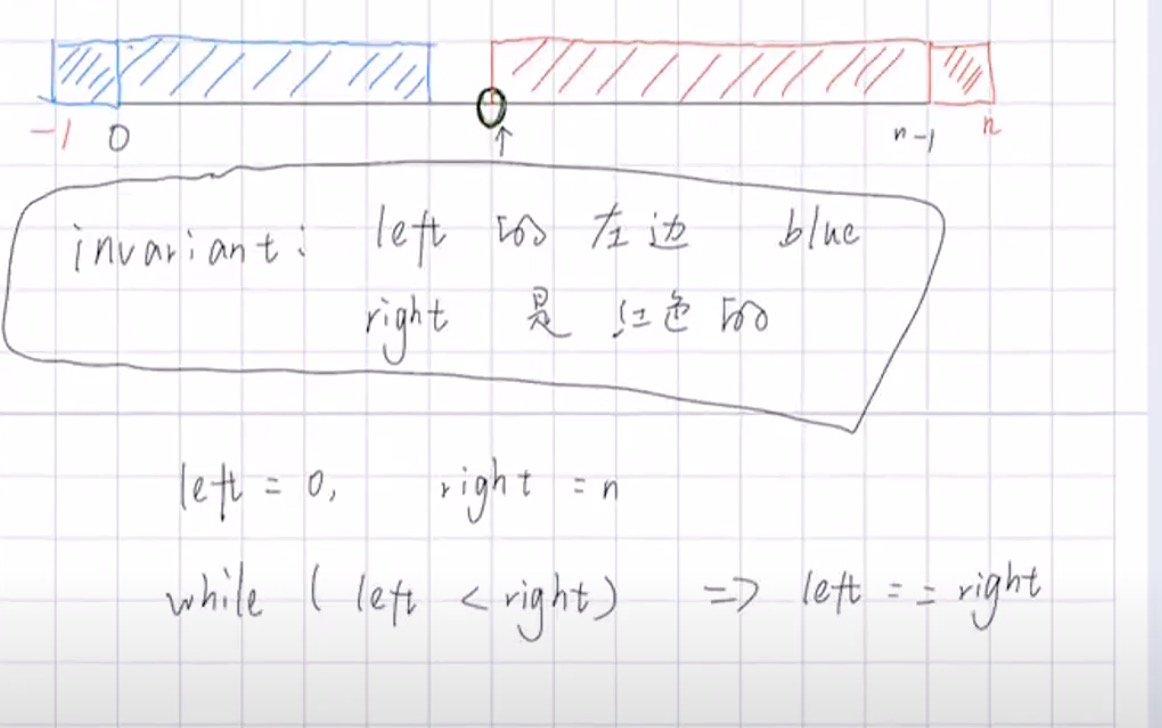 -1 0 n-1 n
invariant: left 的 左边 blue
right 是 红色 的
left = 0, right = n
while ( left < right) => left == right